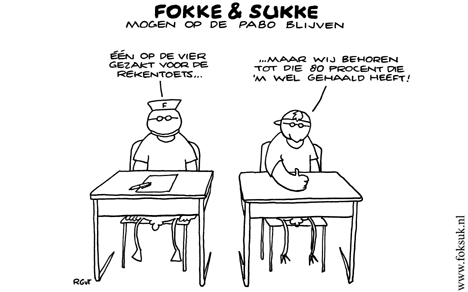 FOKKE & SUKKE
MOGEN OP DE PABO BLIJVEN
ÉÉN OP DE VIER
GEZAKT VOOR DE
REKENTOETS...
...MAAR WIJ BEHOREN
TOT DIE 80 PROCENT DIE
'M WEL GEHAALD HEEFT!
F
S
RGvT
www.foksuk.nl